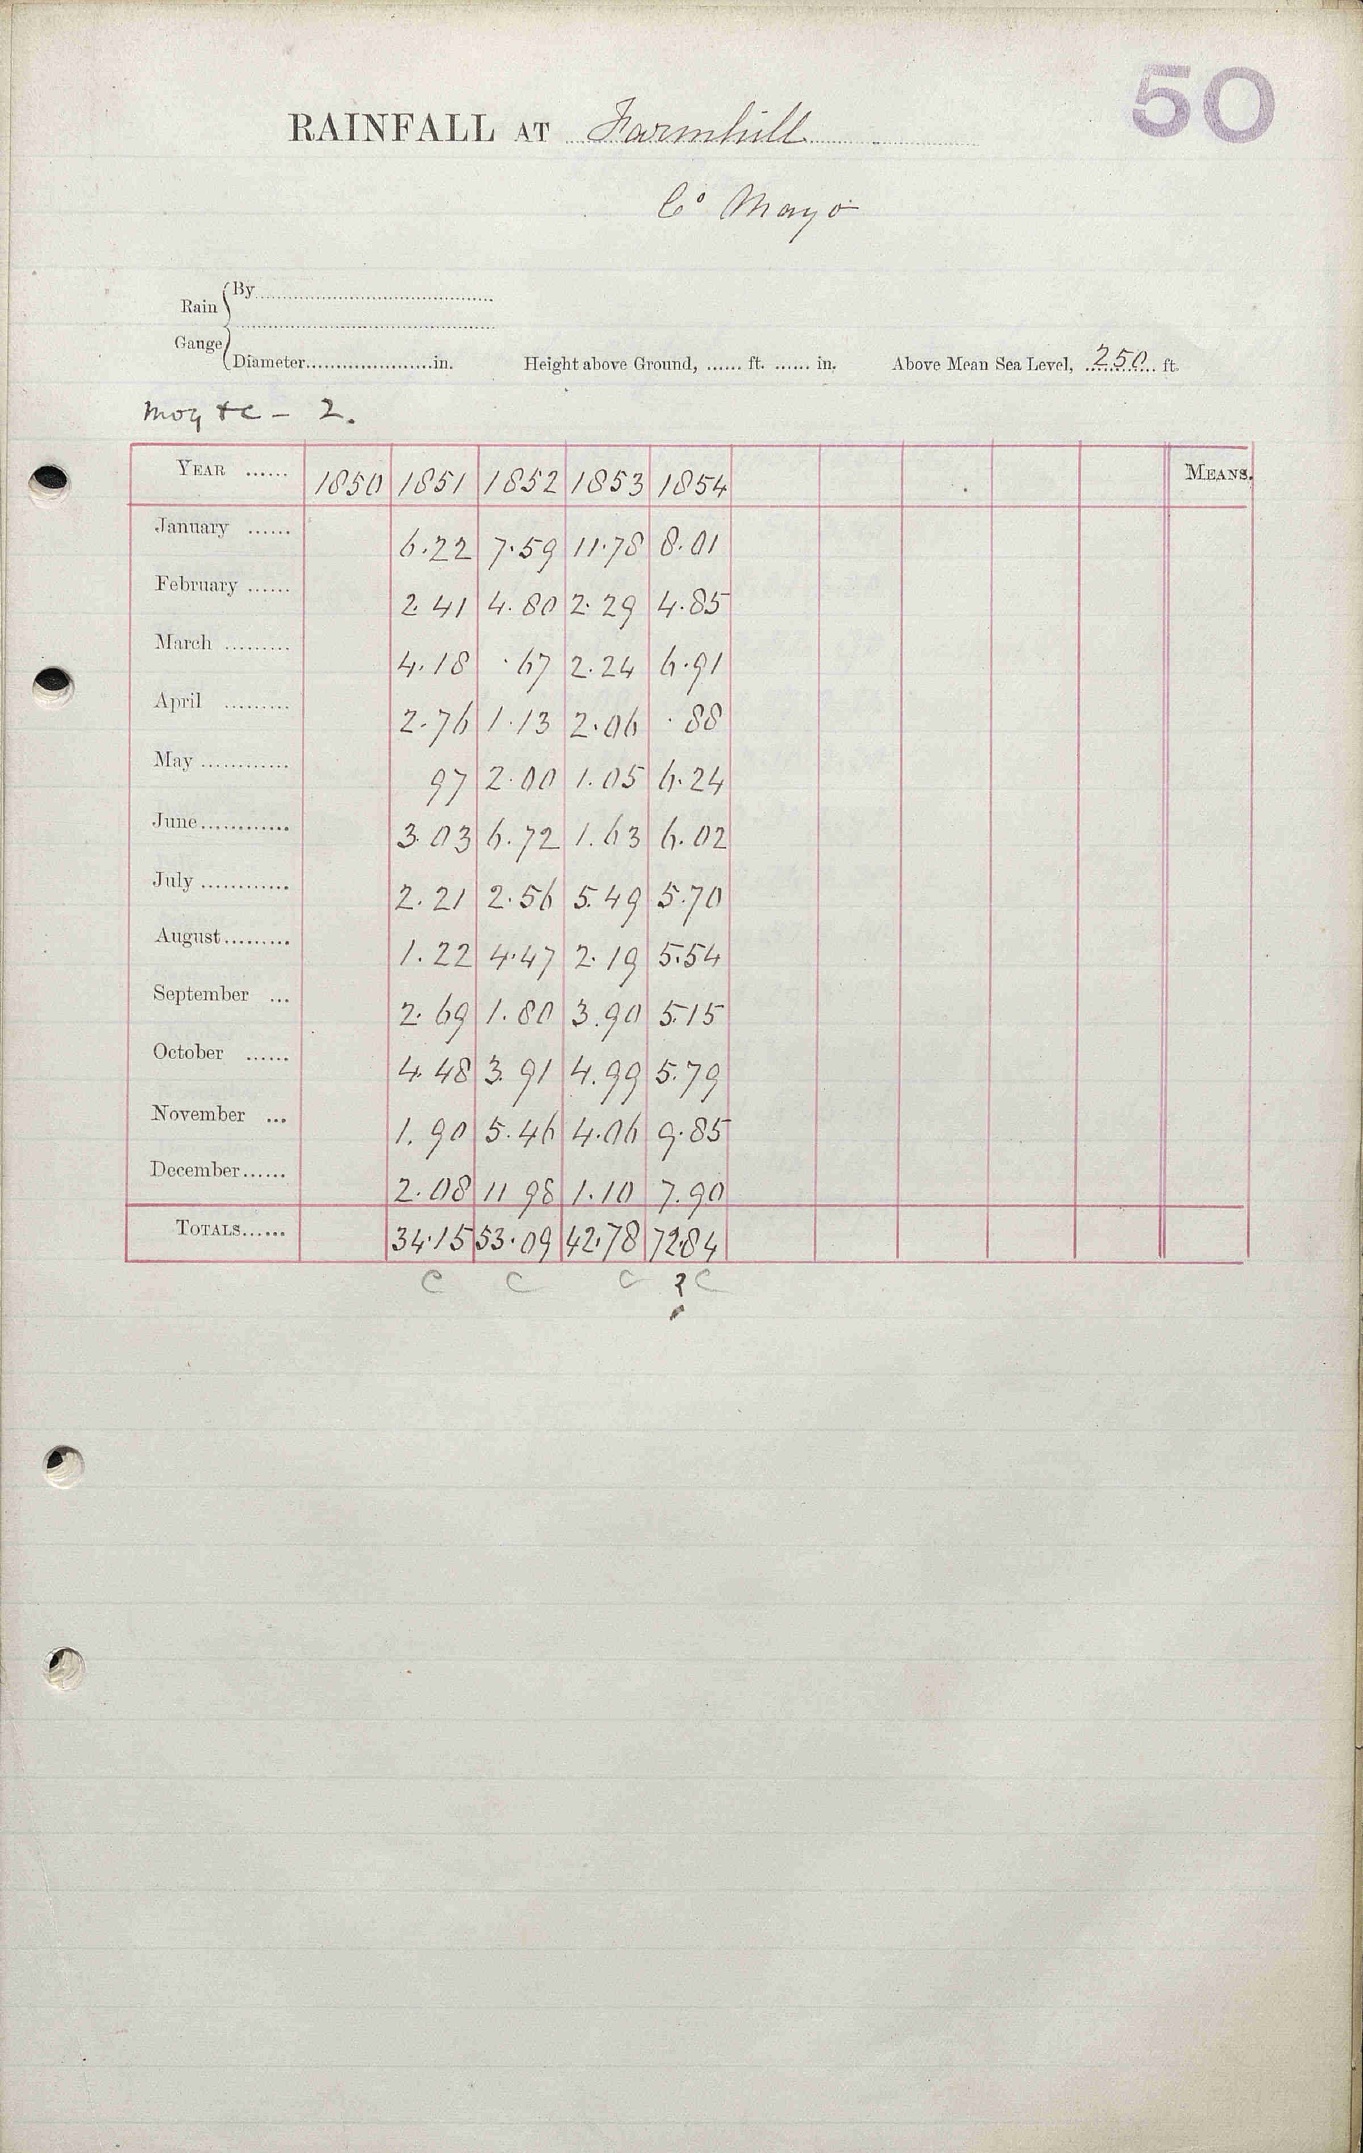 50
RAINFALL AT Farmhill
Co Mayo
Rain { By
Gauge { Diameter in. Height above Ground, ft. in. Above Mean Sea Level, 250 ft.
2.
YEAR 1850 1851 1852 1853 1854 MEANS.
January 6.22 7.59 11.78 8.01
February 2.41 4.80 2.29 4.85
March 4.18 .67 2.24 6.91
April 2.76 1.13 2.06 .88
May 97 2.00 1.05 6.24
June 3.03 6.72 1.63 6.02
July 2.21 2.56 5.49 5.70
August 1.22 4.47 2.19 5.54
September 2.69 1.80 3.90 5.15
October 4.48 3.91 4.99 5.79
November 1.90 5.46 4.06 9.85
December 2.08 11 98 1.10 7.90
TOTALS 34.15 53.09 42.78 72.84
C C C ? C